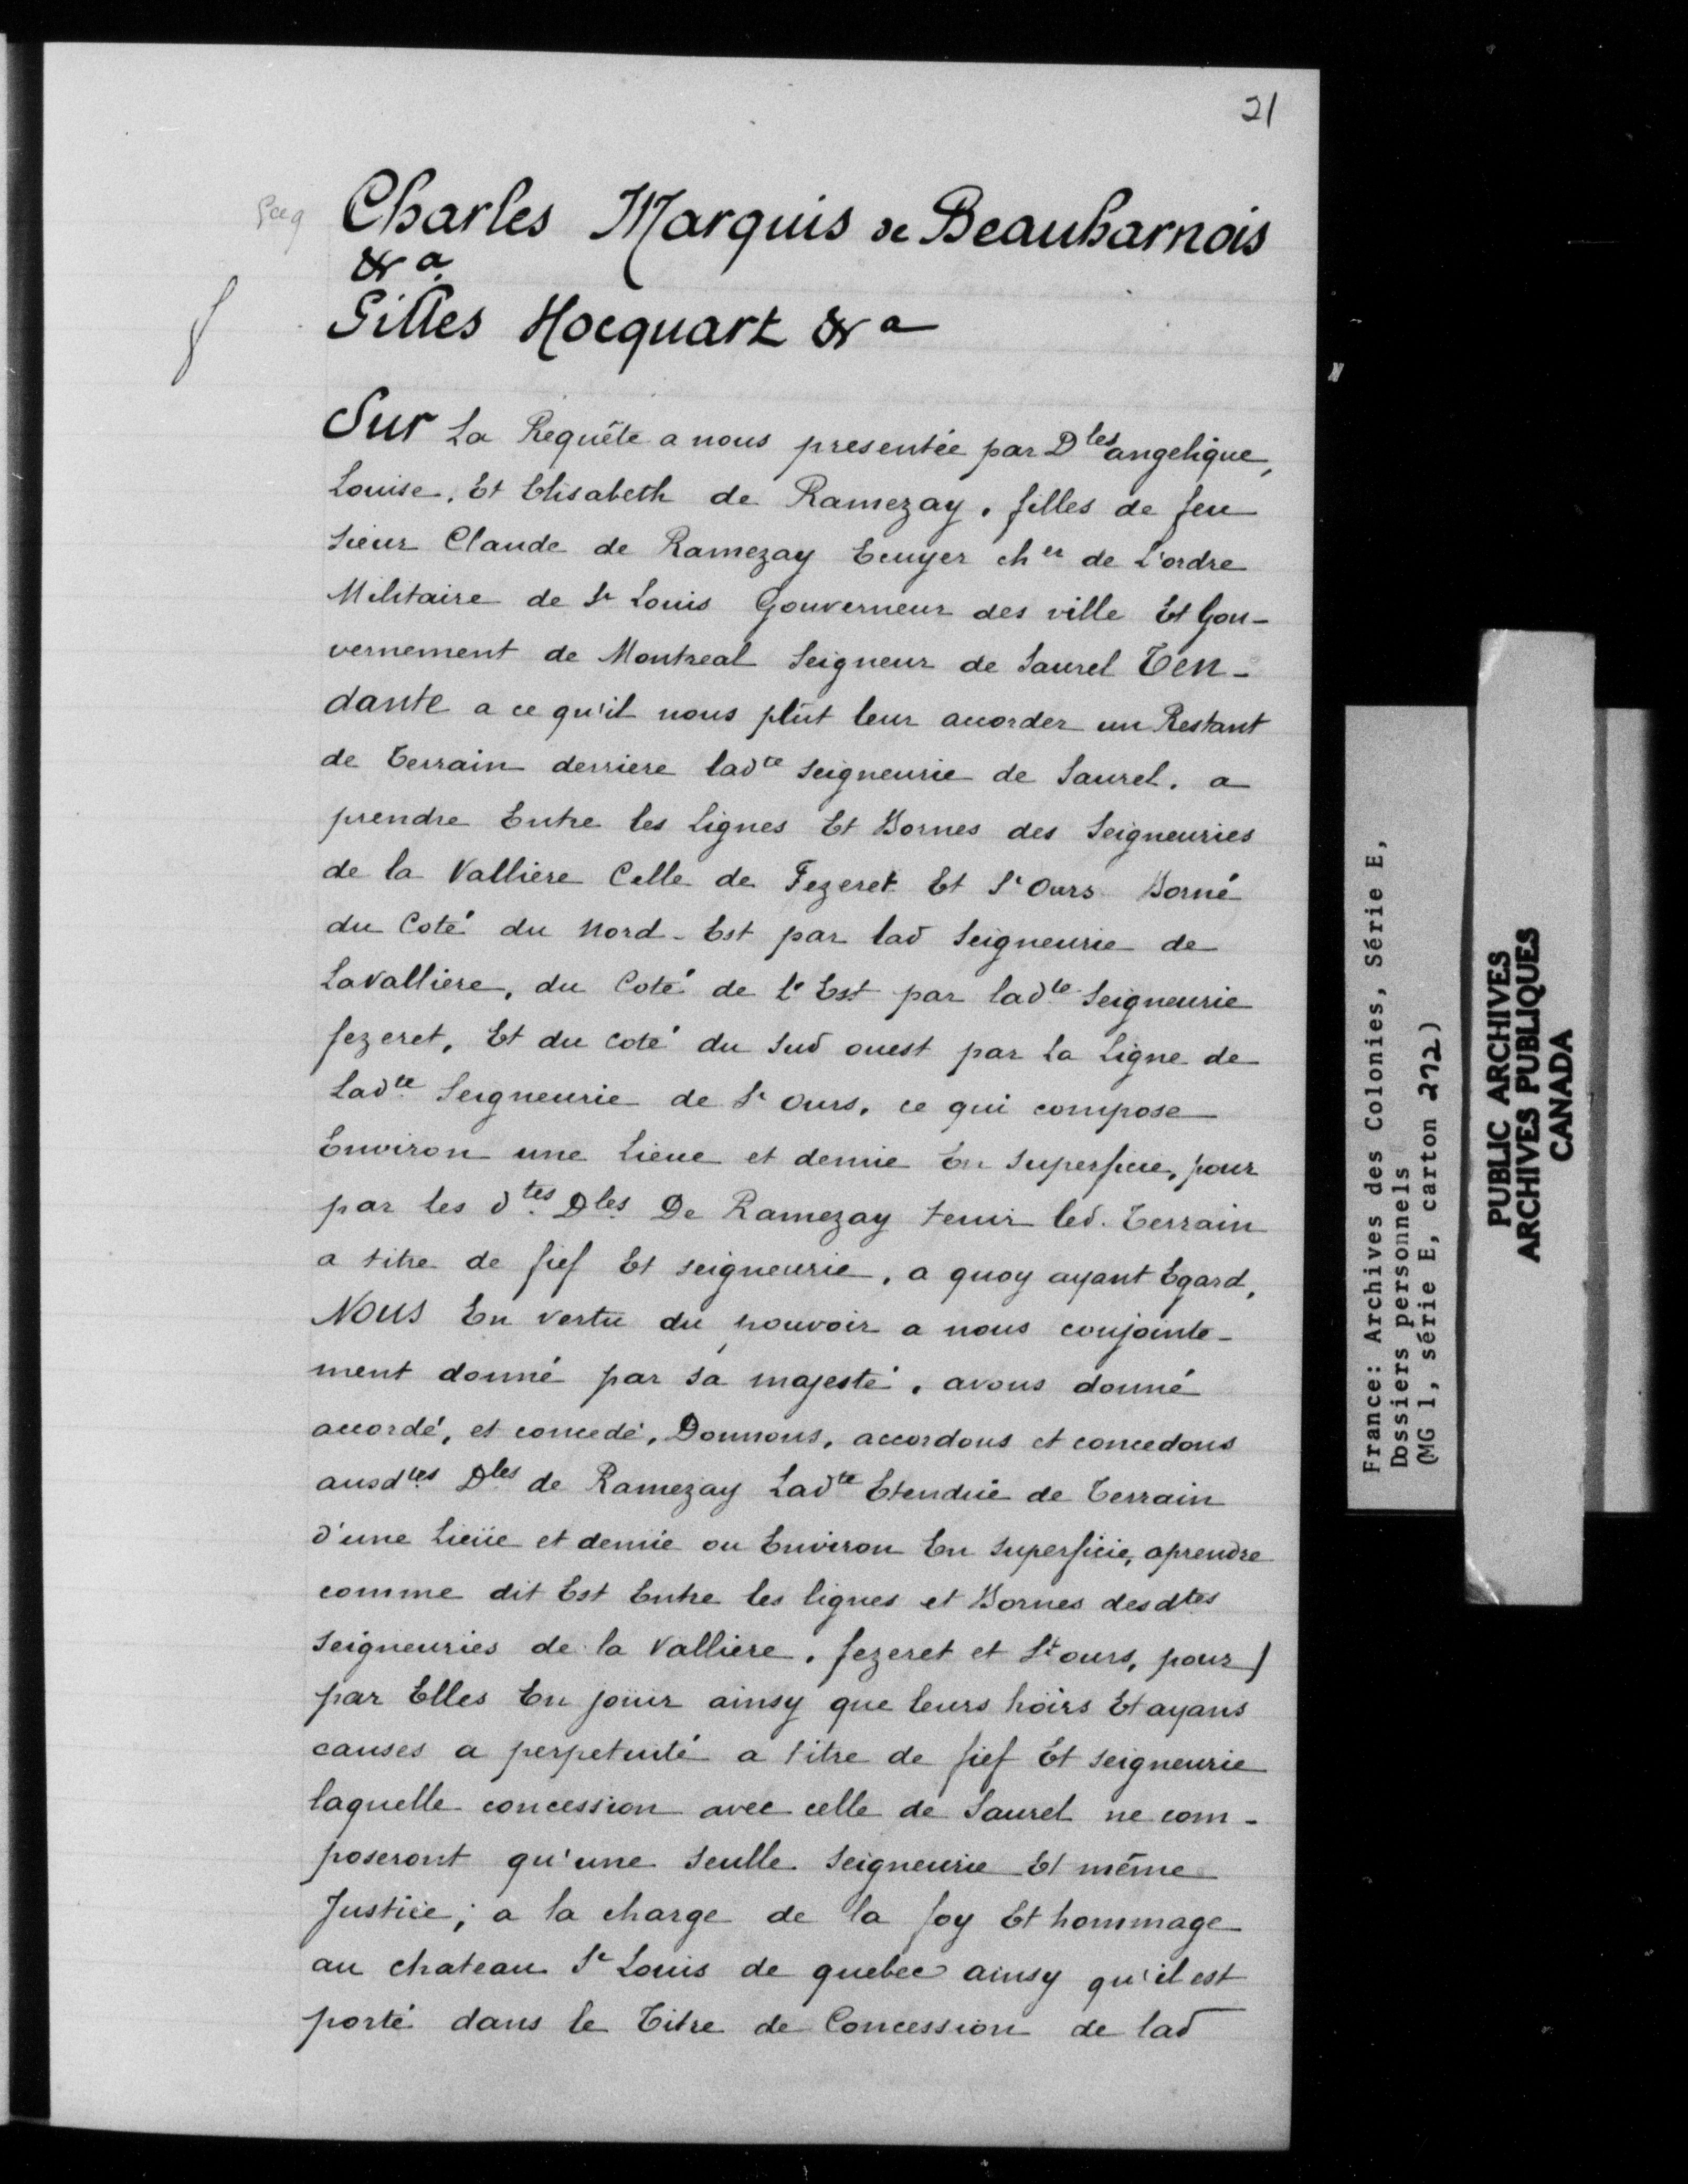 21
Charles Marquis de Beauharnois
&a
Gilles Hocquart &a
Sur La Requête a nous presentée par Dles angelique,
Louise, Et Elisabeth de Ramezay, filles de feu
Sieur Claude de Ramezay Ecuyer cher de L'ordre
Militaire de St Louis Gouverneur des ville Et Gou-
vernement de Montreal Seigneur de Saurel Ten-
dante a ce qu'il nous plût leur accorder un Restant
de Terrain derriere ladte Seigneurie de Saurel, a
prendre Entre les Lignes Et Bornes des Seigneuries
de la Valliere Celle de Fezeret Et St Ours Borné
du Coté du Nord-Est par lad Seigneurie de
Lavalliere, du Coté de l'Est par ladte Seigneurie
fezeret, Et du coté du Sud ouest par La Ligne de
Ladte Seigneurie de St ours, ce qui compose
Environ une Lieue et demie En Superficie, pour
par les dtes Dles De Ramezay tenir led. Terrain
a titre de fief Et seigneurie, a quoy ayant Egard,
Nous En vertu du pouvoir a nous conjointe-
ment donné par sa majesté, avons donné
accordé, et concedé, Donnons, accordons et concedons
ausdtes Dles de Ramezay Ladte Etendüe de Terrain
d'une Lieüe et demie ou Environ En Superficie, aprendre
comme dit Est Entre les lignes et Bornes desdtes
Seigneuries de la Valliere, fezeret et St ours, pour
par Elles En joüir ainsy que leurs hoirs Et ayans
causes a perpetuité a titre de fief Et seigneurie
laquelle concession avec celle de Saurel ne com-
poseront qu'une seulle Seigneurie Et même
Justice; a la charge de la foy Et hommage
au chateau St Louis de quebec ainsy qu'il est
porté dans le Titre de Concession de lad
France: Archives des Colonies, Série E,
Dossiers personnels
(MG 1, série E, carton 272)
PUBLIC ARCHIVES
ARCHIVES PUBLIQUES
CANADA